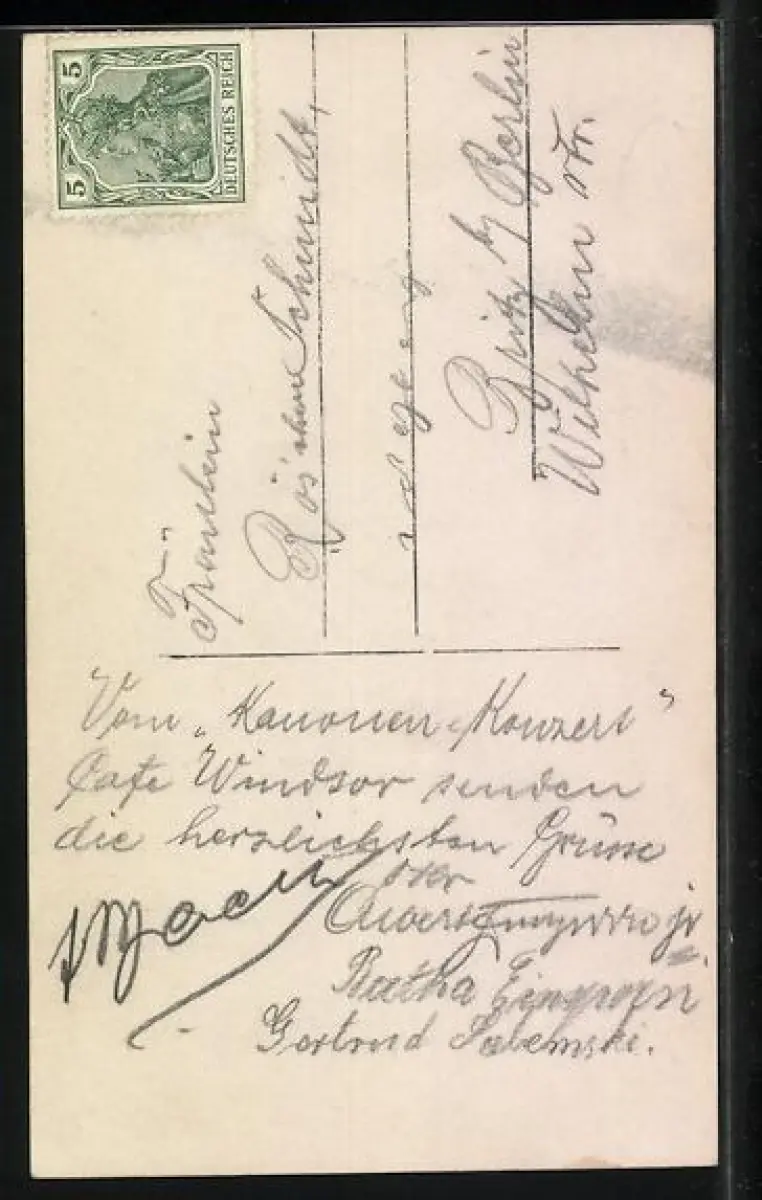 5 5
DEUTSCHES REICH
Fräulein
Röschen Schmidt,
Britz by Berlin
Wilhelm str.
Vom „Kanonen-Konzert”
Cafe Windsor senden
die herzlichsten Grüsse
jr.
Gertrud